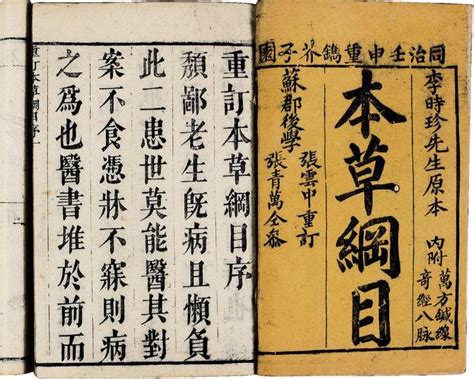 同治壬申重鐫芥子園
李時珍先生原本
內附
萬方鍼線
奇經八脉
本草綱目
蘇郡後學
張雲中重訂
張青萬仝參
重訂本草綱目序
頹鄙老生旣病且懶負
此二患世莫能醫其對
案不食憑牀不寐則病
之爲也醫書堆於前而
重訂本草綱目序